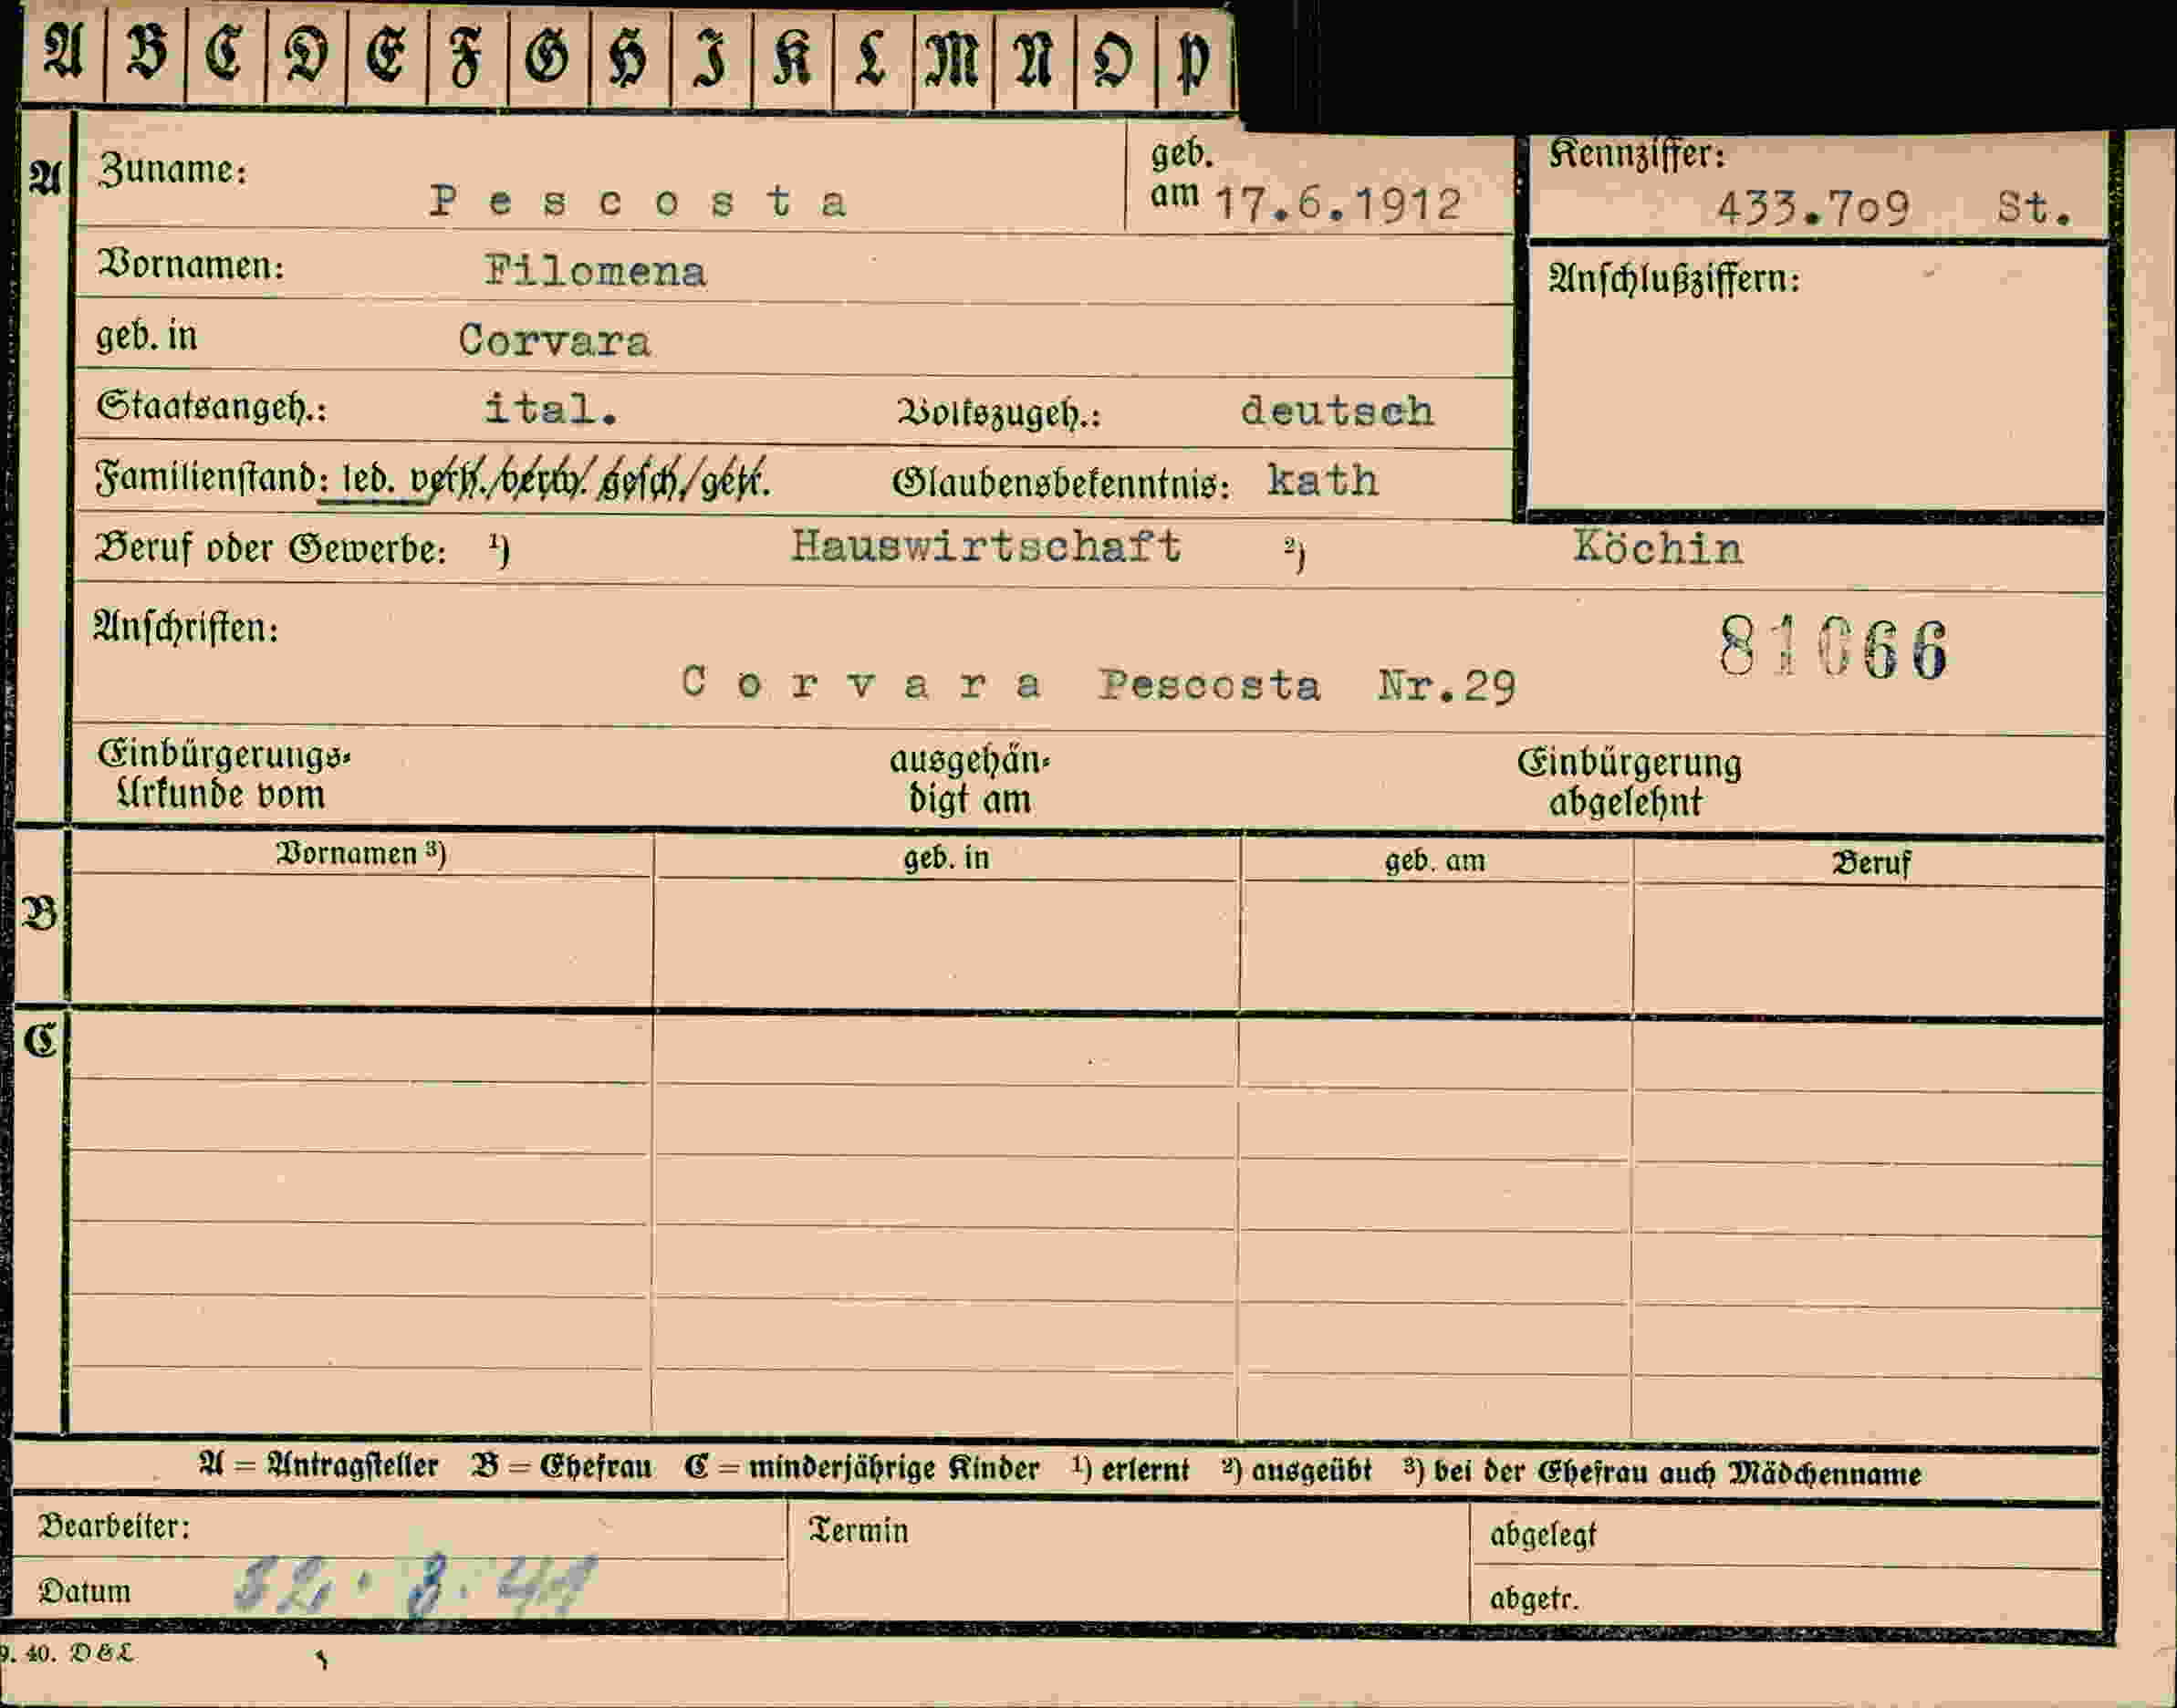 A B C D E F G H I K L M N O P
A Zuname: Pescosta geb. am 17.6.1912 Kennziffer: 433.709 St.
Vornamen: Filomena Anschlußziffern:
geb. in Corvara
Staatsangeh.: ital. Volkszugeh.: deutsch
Familienstand: led. verh./verw. gesch./getr. Glaubensbekenntnis: kath
Beruf oder Gewerbe: ¹) Hauswirtschaft ²) Köchin
Anschriften: 81066
Corvara Pescosta Nr.29
Einbürgerungs- ausgehän- Einbürgerung
Urkunde vom digt am abgelehnt
Vornamen ³) geb. in geb. am Beruf
B
C
A = Antragsteller B = Ehefrau C = minderjährige Kinder ¹) erlernt ²) ausgeübt ³) bei der Ehefrau auch Mädchenname
Bearbeiter: Termin abgelegt
Datum abgetr.
9. 40. D & L